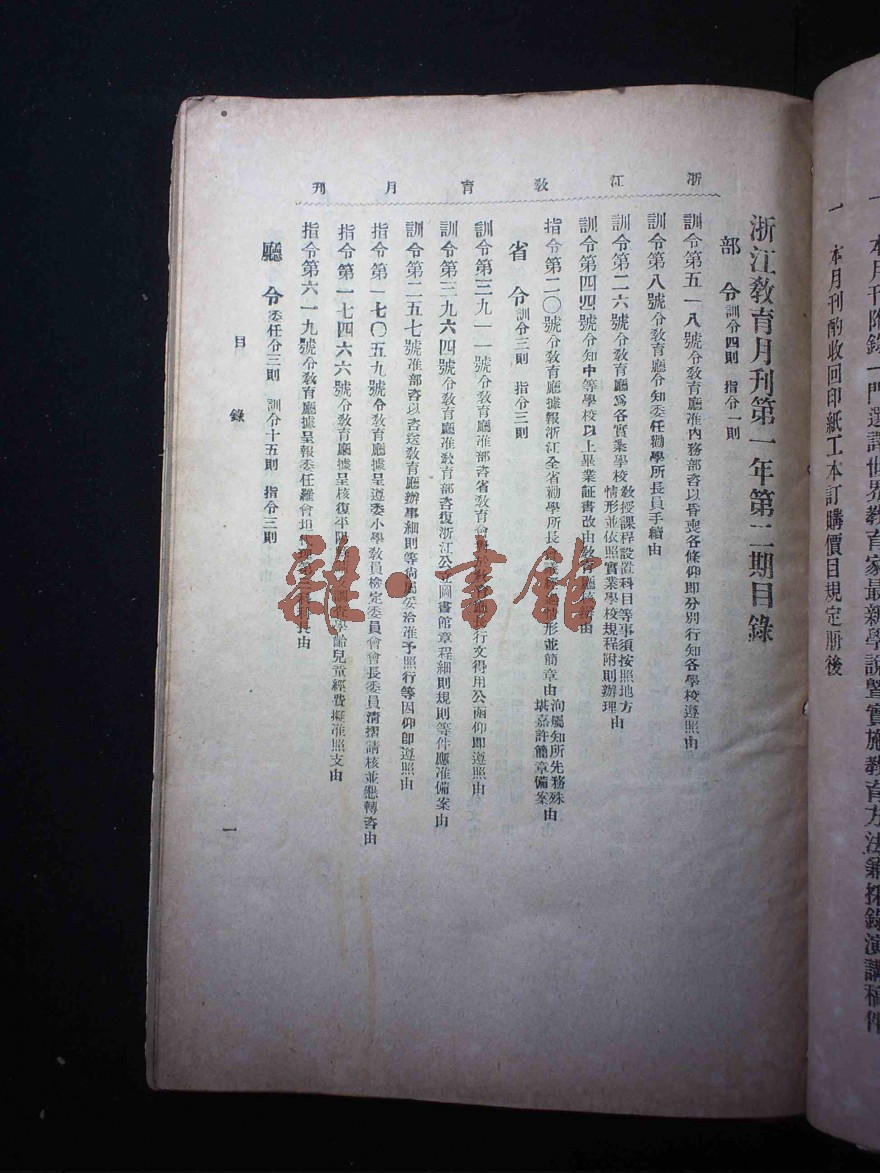 一 本月刊附錄一門選譯世界教育家最新學說暨實施教育方法兼採錄演講稿件
一 本月刊酌收回印紙工本訂購價目規定册後
浙江教育月刊
浙江教育月刊第一年第二期目錄
部令 訓令四則 指令一則
訓令第五一八號令教育廳准內務部咨以昏喪各條仰卽分別行知各學校遵照由
訓令第八號令教育廳令知委任勸學所長員手續由
訓令第二六號令教育廳爲各實業學校教授課程設置科目等事須按照地方情形並依照實業學校規程附則辦理由
訓令第四四號令知中等學校以上畢業証書改由教育廳 由
指令第二〇號令教育廳據報浙江全省勸學所長會 情形並簡章由洵屬知所先務殊堪嘉許簡章備案由
省令 訓令三則 指令三則
訓令第三九一一號令教育廳准部咨省教育會 教育廳長行文得用公函仰卽遵照由
訓令第三九六四號令教育廳准教育部咨復浙江公 圖書館章程細則規則等件應准備案由
訓令第二五七號准部咨以咨送教育廳辦事細則等尙屬妥洽准予照行等因仰卽遵照由
指令第一七〇五九號令教育廳據呈遵委小學教員檢定委員會會長委員淸摺請核並懇轉咨由
指令第一七四六六號令教育廳據呈核復平陽 調查學齡兒童經費擬准照支由
指令第六一九號令教育廳據呈報委任羅會坦 科 長由
廳令 委任令三則 訓令十五則 指令三則
目錄
一
雜·書館